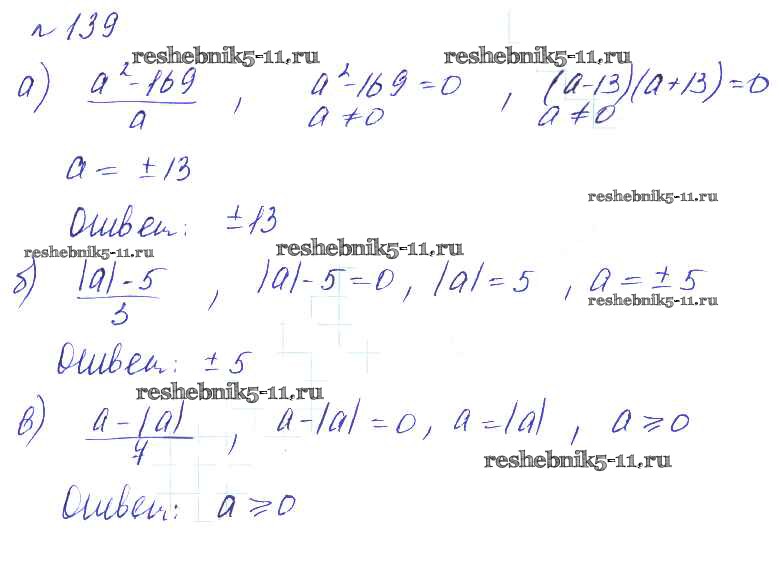 № 139
reshebnik5-11.ru reshebnik5-11.ru
а) (a² - 169)/a , a² - 169 = 0 , (a - 13)(a + 13) = 0
a ≠ 0 a ≠ 0
a = ± 13
reshebnik5-11.ru
Ответ: ± 13
reshebnik5-11.ru reshebnik5-11.ru
б) (|a| - 5)/3 , |a| - 5 = 0 , |a| = 5 , a = ± 5
reshebnik5-11.ru
Ответ: ± 5
reshebnik5-11.ru
в) (a - |a|)/7 , a - |a| = 0 , a = |a| , a ⩾ 0
reshebnik5-11.ru
Ответ: a ⩾ 0